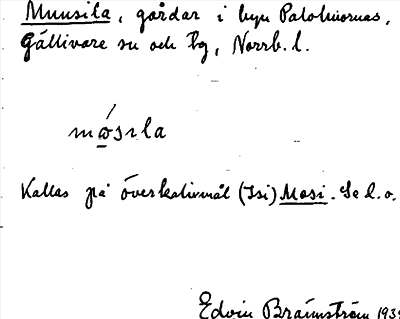 Muusila, gårdar i byn Palohuornas,
Gällivare sn och tg, Norrb. l.
mǫ́sıla
Kallas på överkalixmål (Isi) Mosi. Se d. o.
Edvin Brännström 193